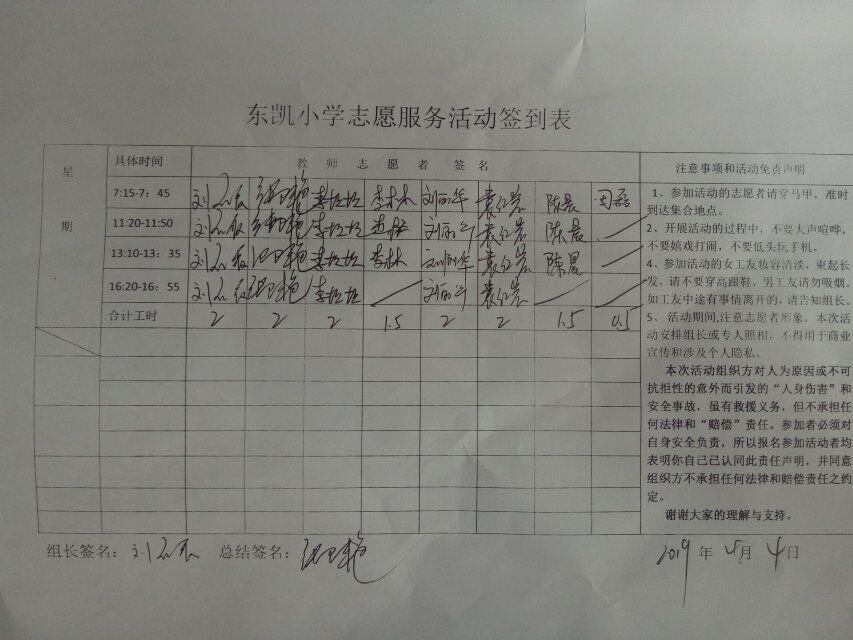 东凯小学志愿服务活动签到表
星期
具体时间 教师志愿者签名 注意事项和活动免责声明
7:15-7：45 李林林 刘丽华 陈晨 周磊
11:20-11:50 陈晨
13:10-13：35 李林 陈晨
16:20-16：55
合计工时 2 2 2 1.5 2 2 1.5 0.5
1、参加活动的志愿者请穿马甲，准时
到达集合地点。
2、开展活动的过程中，不要大声喧哗，
不要嬉戏打闹，不要低头玩手机。
4、参加活动的女工友妆容清淡，束起长
发，请不要穿高跟鞋，男工友请勿吸烟。
如工友中途有事情离开的，请告知组长。
5、活动期间,注意志愿者形象，本次活
动安排组长或专人照相，不得用于商业
宣传和涉及个人隐私。
本次活动组织方对人为原因或不可
抗拒性的意外而引发的“人身伤害”和
安全事故，虽有救援义务，但不承担任
何法律和“赔偿”责任。参加者必须对
自身安全负责，所以报名参加活动者均
表明你自己已认同此责任声明，并同意
组织方不承担任何法律和赔偿责任之约
定。
谢谢大家的理解与支持。
组长签名： 总结签名：
2019年 月4日